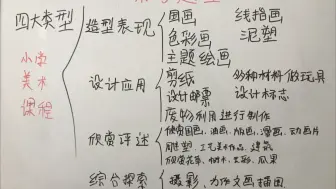 四大类型
小学
美术
课程
造型表现
国画 线描画
色彩画 泥塑
主题绘画
设计应用
剪纸 多种材料做玩具
设计邮票 设计标志
废物利用进行制作
欣赏评述
欣赏国画、油画、版画、漫画、动画片
雕塑、工艺美术作品、建筑
欣赏花草、树木、云彩、瓜果
综合探索
摄影、为作文插图